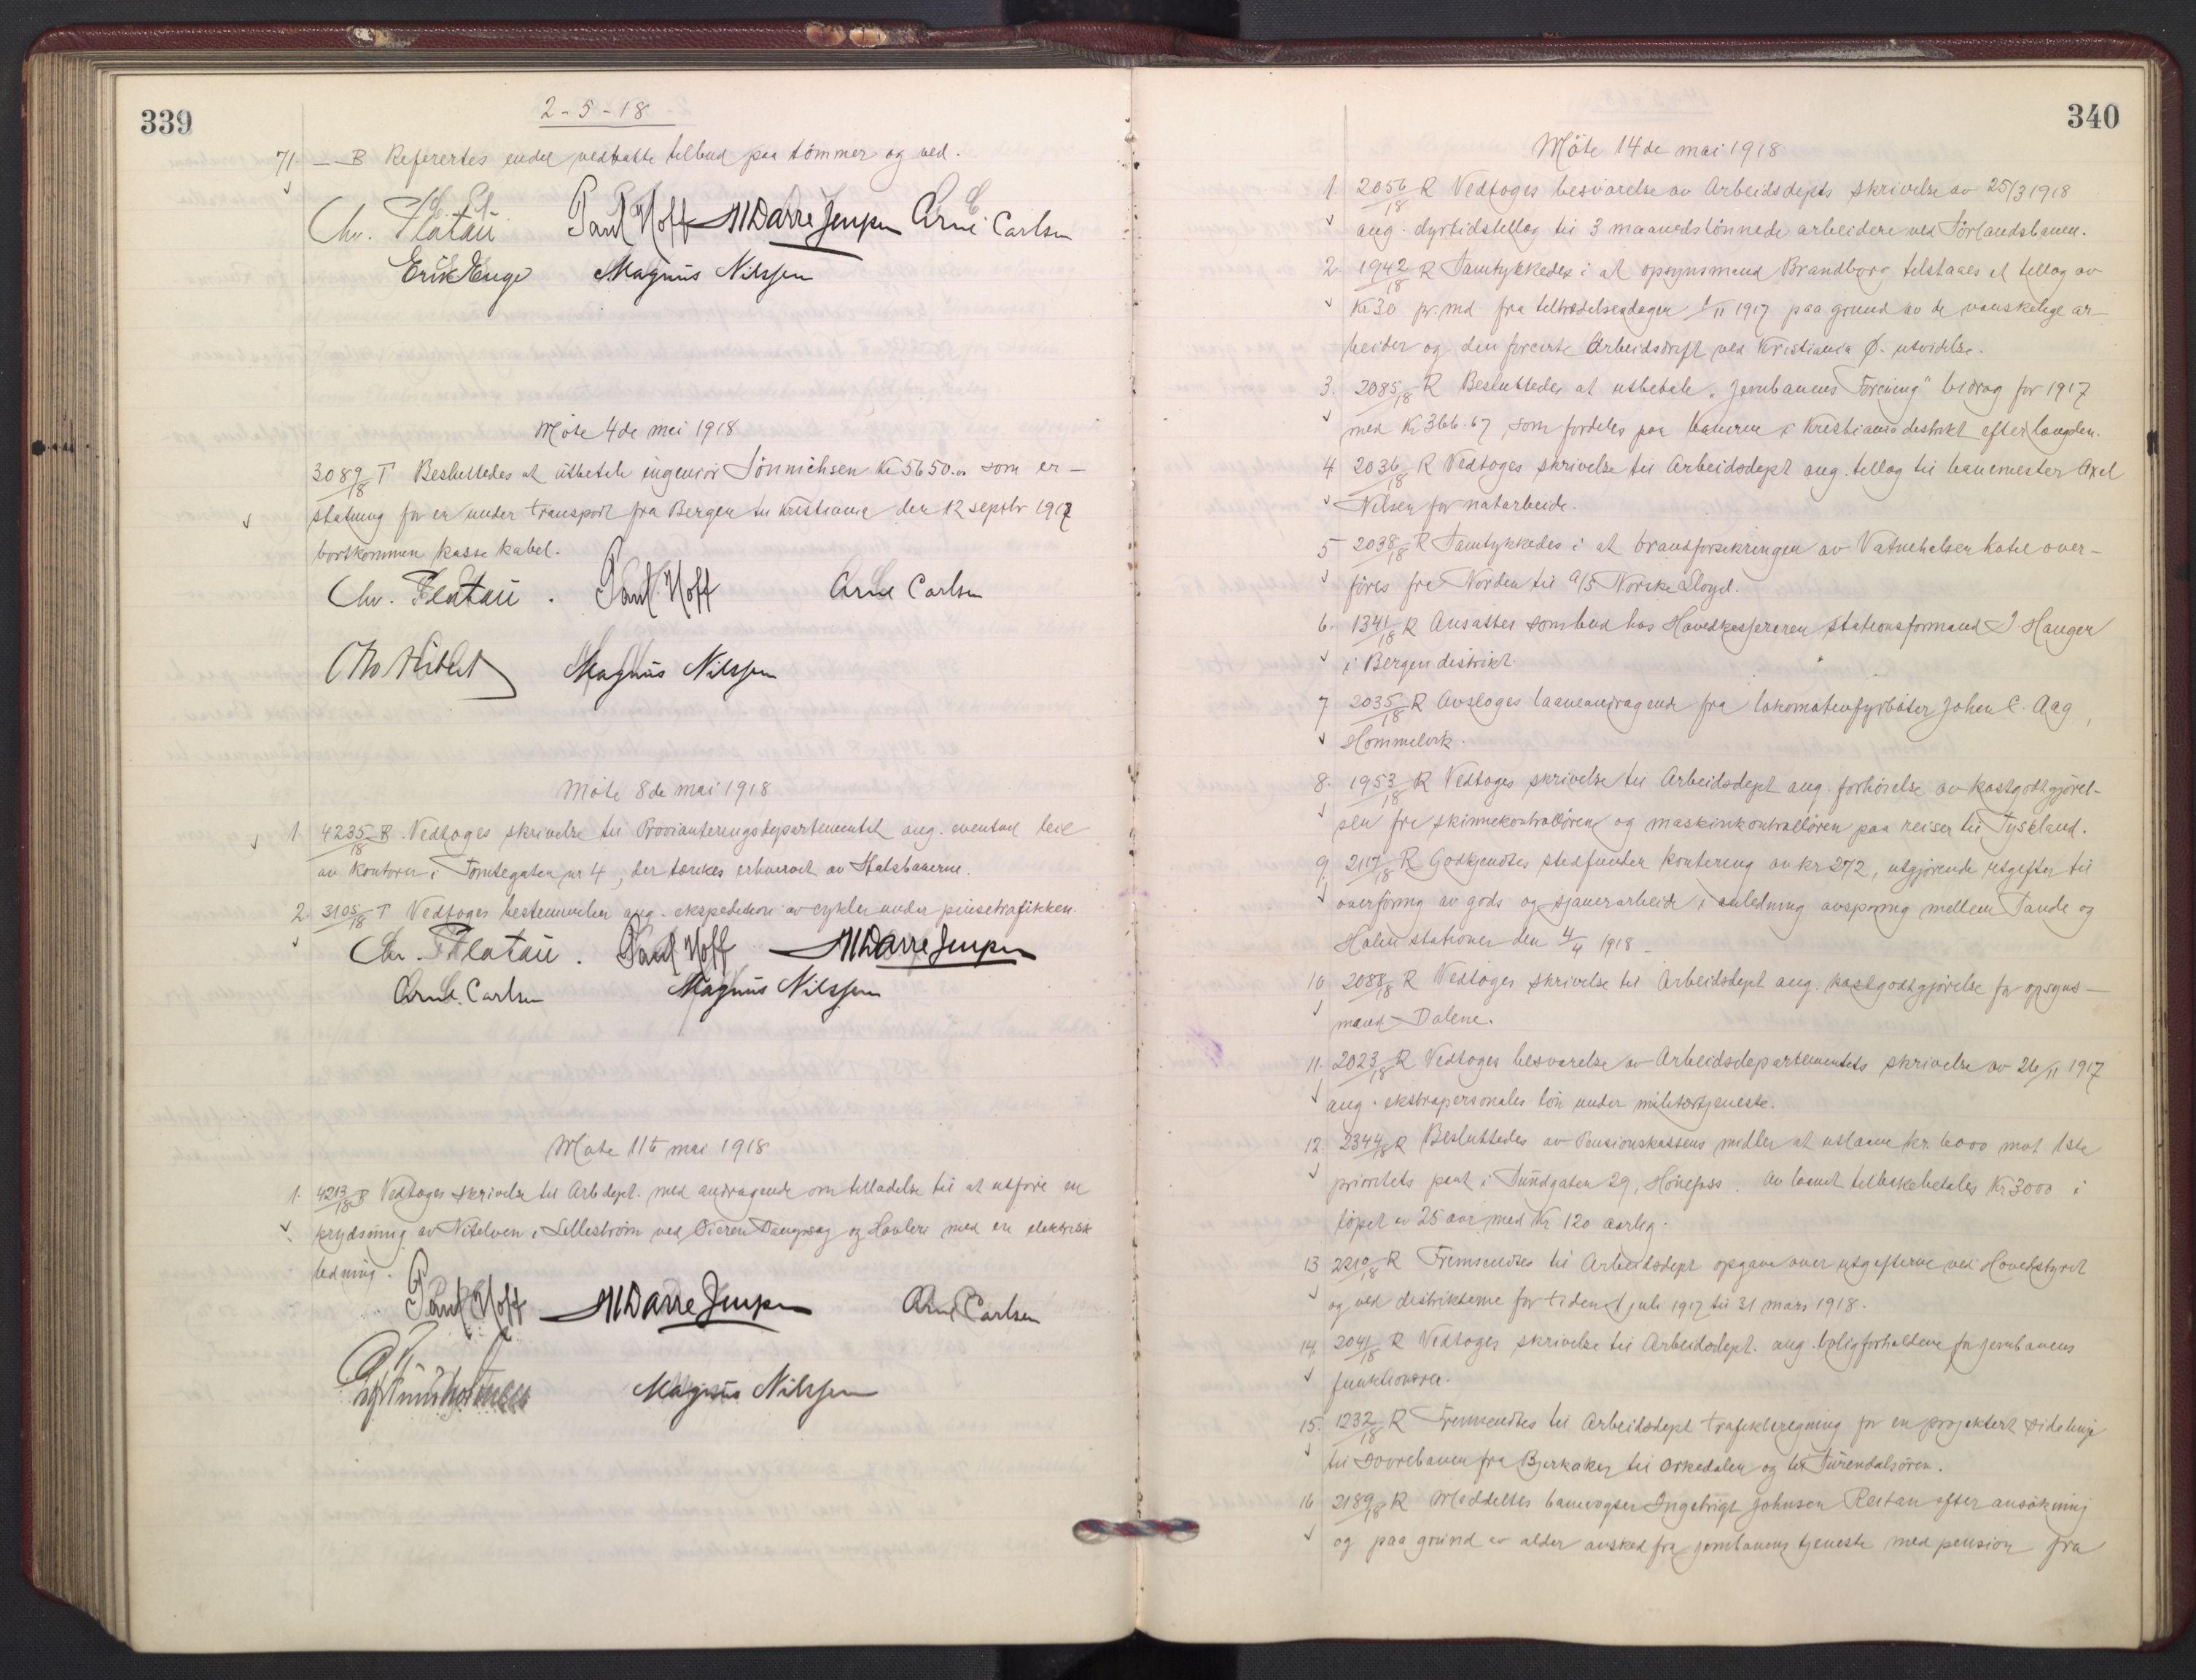 339
2-5-18
71. —B Referertes endel vedtatte tilbud paa tømmer og ved.
Chr. Platou Paul Hoff M Darre Jensen Arne Carlsen
Erik Enge Magnus Nilssen
Møte 4de mai 1918
3089/18 T Besluttedes at utbetale ingeniør Sönnichsen Kr 5650.00 som er-
statning for en under transport fra Bergen til Kristiania den 12 septbr 1917
bortkommen kasse kabel.
Chr. Platou. Paul Hoff Arne Carlsen
Magnus Nilssen
Møte 8de mai 1918
1. 4235/18 R. Vedtoges skrivelse til Provianteringsdepartementet ang. eventuel leie
av kontorer i Tomtegaten nr 4, der tænkes erhvervet av Statsbanerne.
2. 3105/18 T Vedtoges bestemmelser ang. ekspedition av cykler under pinsetrafikken.
Chr. Platou. Paul Hoff M Darre Jensen
Arne Carlsen Magnus Nilssen
Møte 11te mai 1918
1. 4213/18 B Vedtoges skrivelse til Arbdept. med andragende om tilladelse til at utføre en
krydsning av Nitelven i Lillestrøm ved Øieren Dampsag og Høvleri med en elektrisk
ledning.
Paul Hoff M Darre Jensen Arne Carlsen
Magnus Nilssen
340
Møte 14de mai 1918
1. 2056/18 R Vedtoges besvarelse av Arbeidsdepts skrivelse av 25/3 1918
ang. dyrtidstillæg til 3 maanedslønnede arbeidere ved Sørlandsbanen.
2. 1942/18 R Samtykkedes i at opsynsmand Brandborg tilstaaes et tillæg av
Kr 30 pr. md fra tiltrædelsesdagen 1/11 1917 paa grund av de vanskelige ar-
beider og den forcerte arbeidsdrift ved Kristiania Ø. utvidelse.
3. 2085/18 R Besluttedes at utbetale "Jernbanens Forening" bidrag for 1917
med Kr 366.67, som fordeles paa banerne i Kristiania distrikt efter længden.
4 2036/18 R Vedtoges skrivelse til Arbeidsdept ang. tillæg til banemester Axel
Nilsen for natarbeide.
5 2038/18 R Samtykkedes i at brandforsikringen av Vatnehalsen hotel over-
føres fra Norden til A/S Norske Lloyd.
6. 1341/18 R Ansattes som bud hos Hovedkasserereren stationsformand I Haugen
i Bergen distrikt.
7 2035/18 R Avsloges laaneandragende fra lokomotivfyrbøter Johan C. Aag,
Hommelvik.
8. 1953/18 R Vedtoges skrivelse til Arbeidsdept ang. forhøielse av kostgodtgjørel-
sen fra skinnekontrolløren og maskinkontrolløren paa reiser til Tyskland.
9. 2117/18 R Godkjendtes stedfunden kontering av kr 272, utgjørende utgifter til
overføring av gods og sjauerarbeide i anledning avsporing mellem Sande og
Holm stationer den 4/4 1918.
10 2088/18 R Vedtoges skrivelse til Arbeidsdept ang. kostgodtgjørelse for opsyns-
mand Dalene.
11. 2023/18 R Vedtoges besvarelse av Arbeidsdepartementets skrivelse av 26/11 1917
ang. ekstrapersonales løn under militærtjeneste.
12. 2344/18 R Besluttedes av Pensionskassens midler at utlaane kr. 6000 mot 1ste
prioritets pant i Sundgaten 29, Hønefoss. Av laanet tilbakebetales Kr 3000 i
løpet av 25 aar med Kr 120 aarlig.
13 2210/18 R Fremsendtes til Arbeidsdept opgave over utgifterne ved Hovedstyret
og ved distrikterne for tiden 1 juli 1917 til 31 mars 1918.
14 2041/18 R Vedtoges skrivelse til Arbeidsdept. ang. boligforholdene for jernbanens
funktionærer.
15. 1232/18 R Fremsendtes til Arbeidsdept trafikberegning for en projektert sidelinje
til Dovrebanen fra Bjerkaker til Orkedalen og til Surendalsøren.
16 2189/18 R Meddeltes banevogter Ingebrigt Johnsen Reitan efter ansøkning
og paa grund av alder avsked fra jernbanens tjeneste med pension fra